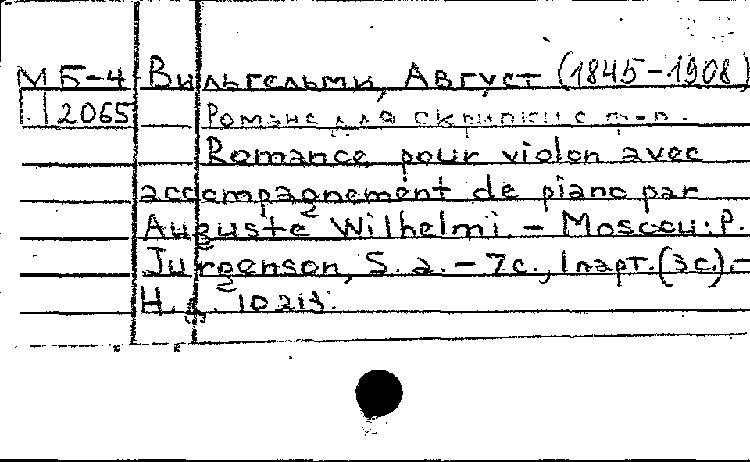 МБ-4 Вильгельми, Август (1845-1908)
2065 Романс для скрипки с ф-п.
Romance pour violon avec
accompagnement de piano par
Auguste Wilhelmi. - Moscou: P.
Jurgenson, S. a. - 7с., 1парт. (3с.) -
Н. д. 10213.